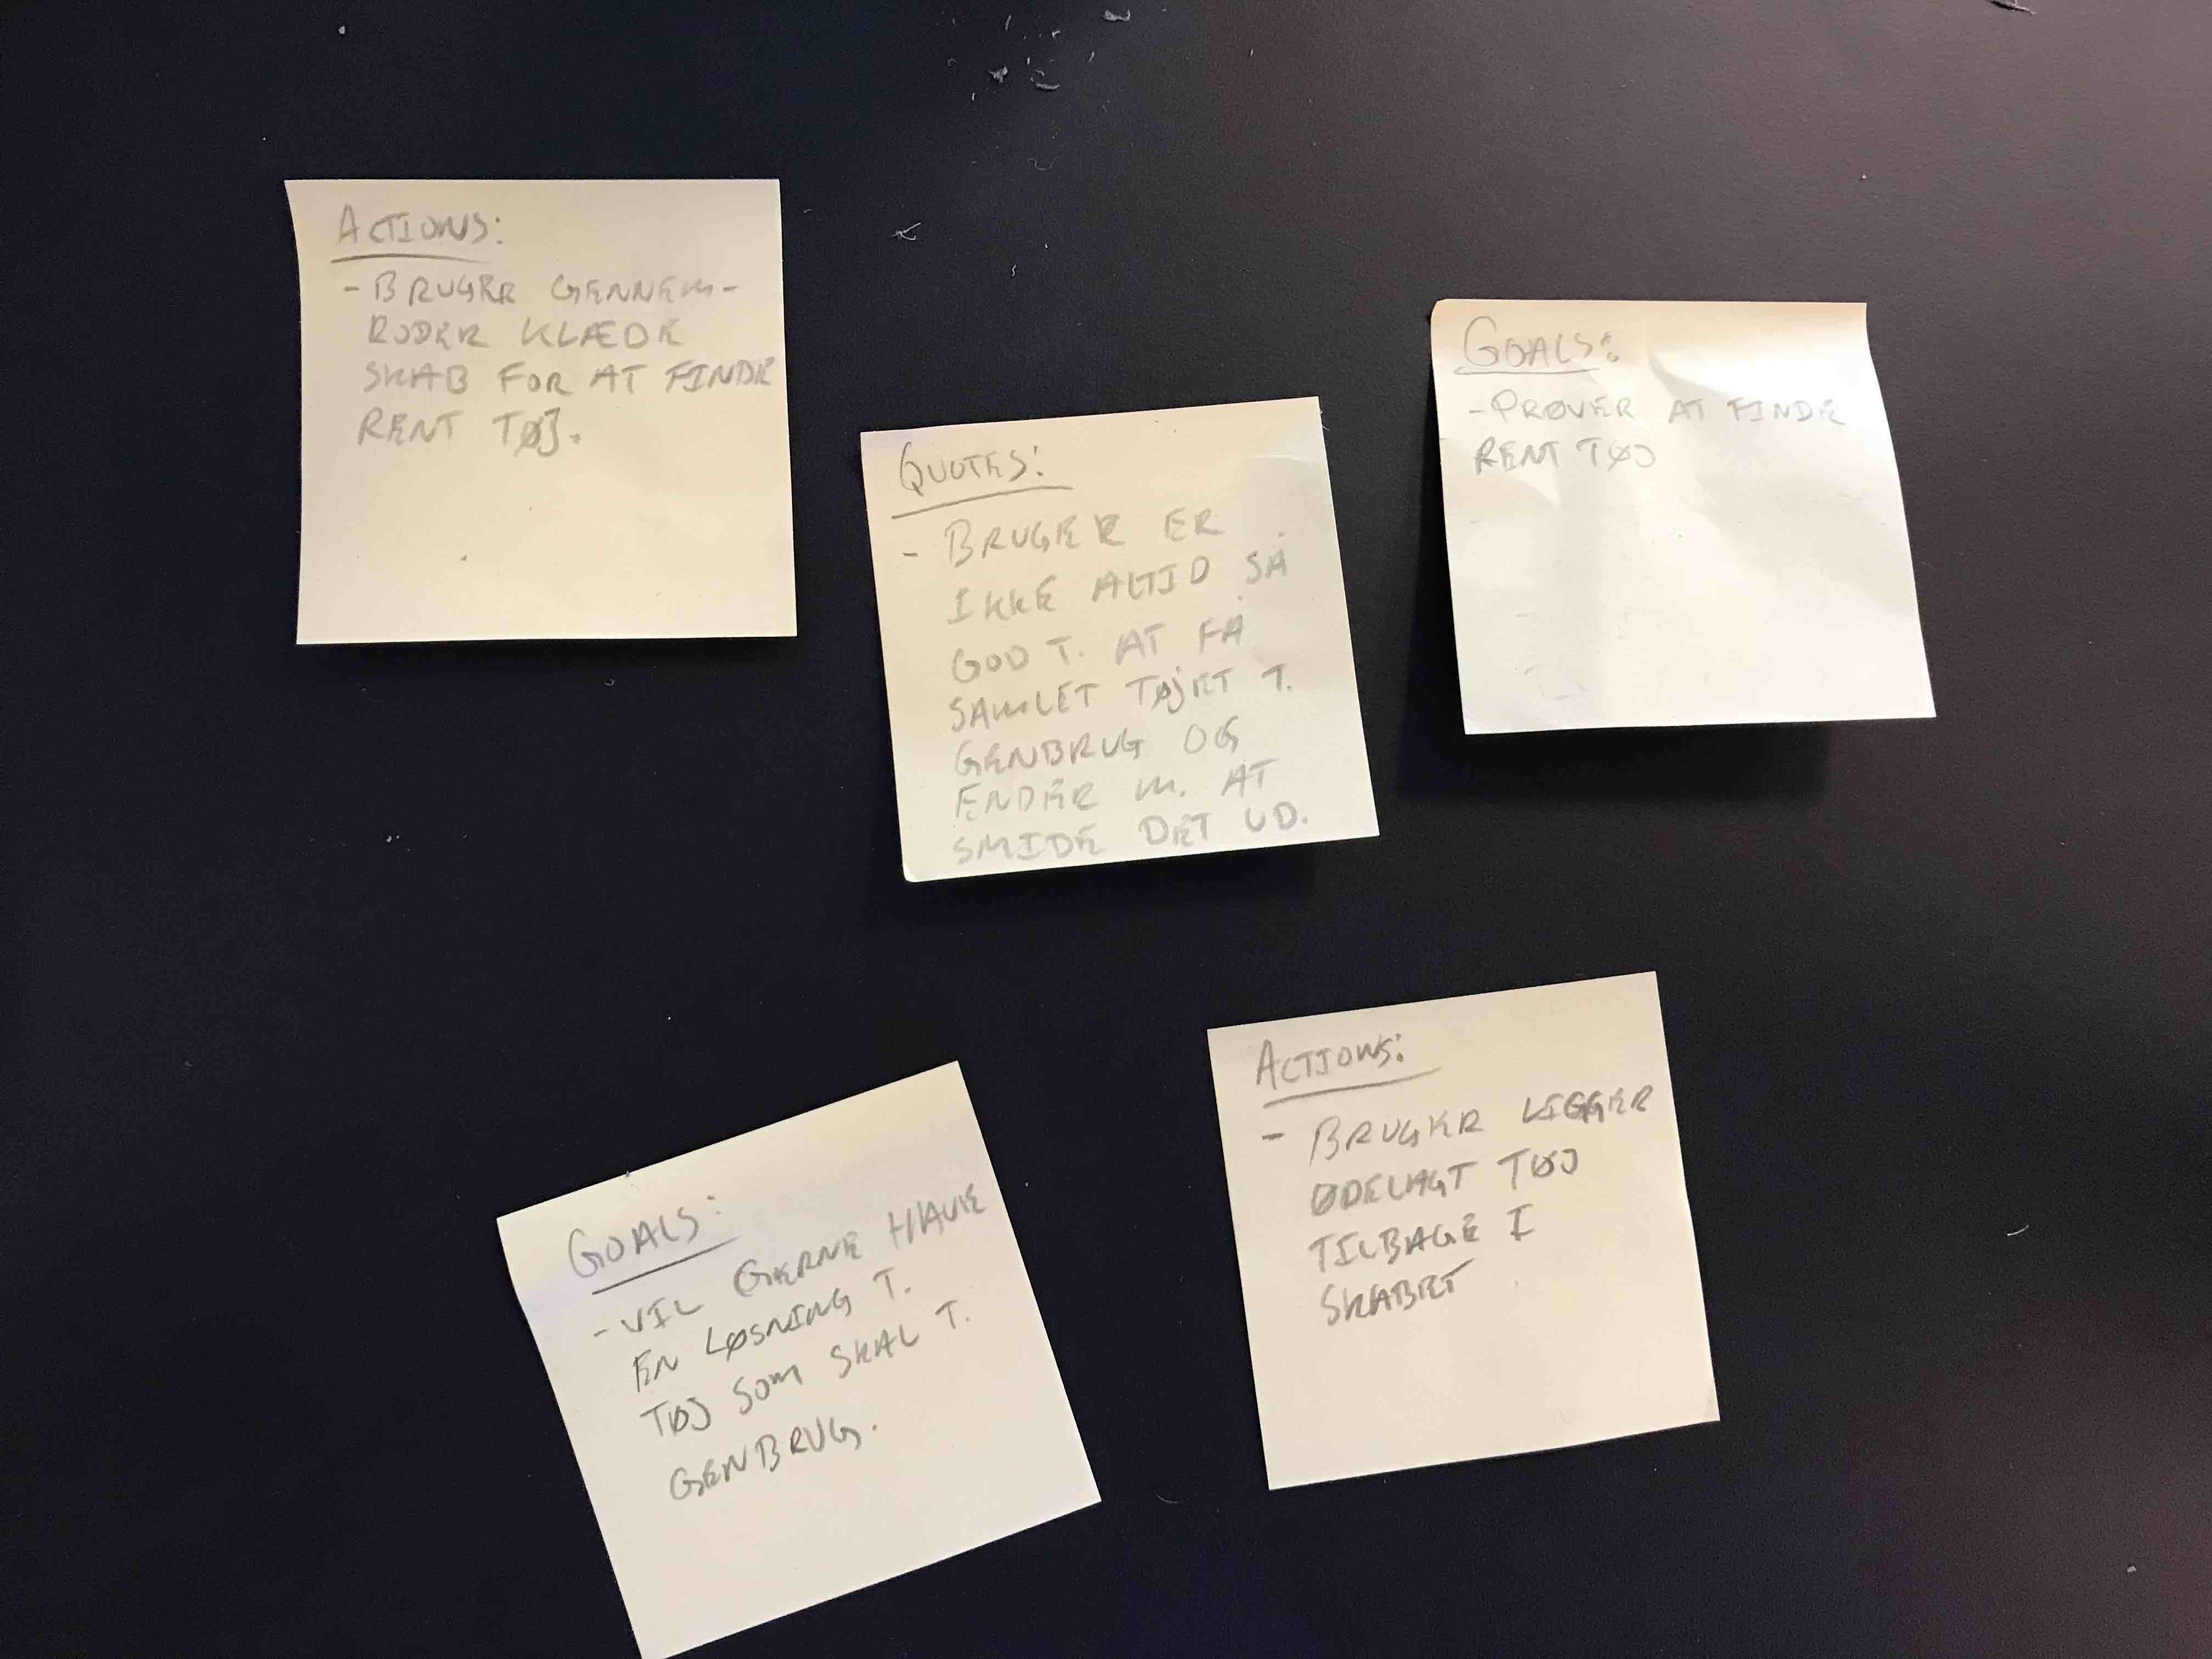 ACTIONS:
- BRUGER GENNEM-
RODER KLÆDE
SKAB FOR AT FINDE
RENT TØJ.
QUOTES:
- BRUGER ER
IKKE ALTID SÅ
GOD T. AT FÅ
SAMLET TØJET T.
GENBRUG OG
ENDER M. AT
SMIDE DET UD.
GOALS:
- PRØVER AT FINDE
RENT TØJ
GOALS:
- VIL GERNE HAVE
EN LØSNING T.
TØJ SOM SKAL T.
GENBRUG.
ACTIONS:
- BRUGER LIGGER
ØDELAGT TØJ
TILBAGE I
SKABET